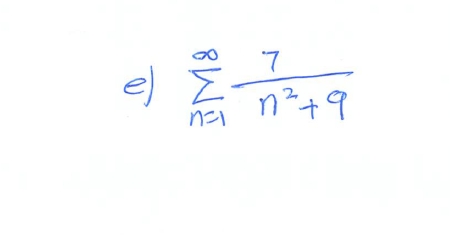 e) \sum_{n=1}^{\infty} \frac{7}{n^2+9}